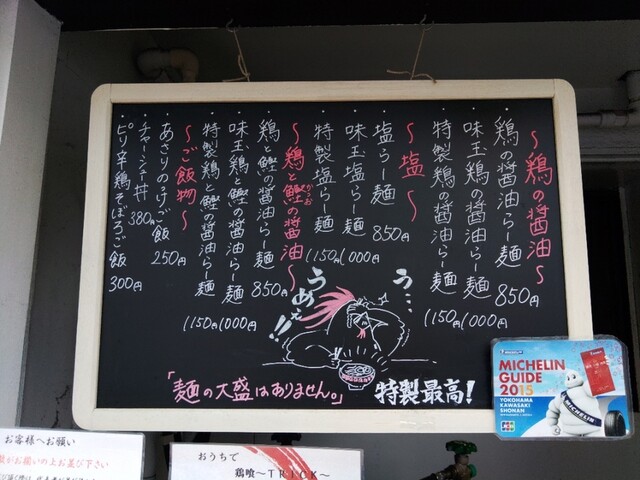 ～鶏の醤油～
・鶏の醤油らー麺 850円
・味玉鶏の醤油らー麺 1000円
・特製鶏の醤油らー麺 1150円
～塩～
・塩らー麺 850円
・味玉塩らー麺 1000円
・特製塩らー麺 1150円
～鶏と鰹の醤油～
かつお
・鶏と鰹の醤油らー麺 850円
・味玉鶏と鰹の醤油らー麺 1000円
・特製鶏と鰹の醤油らー麺 1150円
～ご飯物～
・あさりのっけご飯 250円
・チャーシュー丼 380円
・ピリ辛鶏そぼろご飯 300円
う…
うめぇ!!
「麺の大盛はありません。」
特製最高!
MICHELIN
GUIDE
2015
YOKOHAMA
KAWASAKI
SHONAN
MICHELIN
JCB
お客様へお願い
お願いの上お並び下さい
おうちで
鶏喰～TRICK～